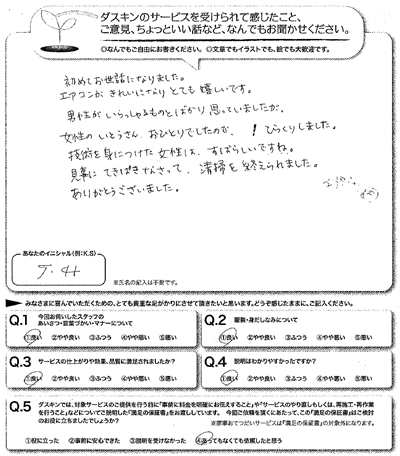 ダスキンのサービスを受けられて感じたこと、
ご意見、ちょっといい話など、なんでもお聞かせください。
◎なんでもご自由にお書きください。◎文章でもイラストでも、絵でも大歓迎です。
初めてお世話になりました。
エアコンがきれいになりとても嬉しいです。
男性がいらっしゃるものとばかり思っていましたが、
女性のいとうさん、おひとりでしたので、！びっくりしました。
技術を身につけた女性は、すばらしいですね。
見事にてきぱきなさって、清掃を終えられました。
ありがとうございました。
あなたのイニシャル(例:K.S)
※氏名の記入は不要です。
みなさまに喜んでいただくための、とても貴重な足がかりにさせて頂きたいと思います。どうぞ感じたままに、ご記入ください。
Q.1 今回お伺いしたスタッフの
あいさつ・言葉づかい・マナーについて
①良い ②やや良い ③ふつう ④やや悪い ⑤悪い
Q.2 服装・身だしなみについて
①良い ②やや良い ③ふつう ④やや悪い ⑤悪い
Q.3 サービスの仕上がりや効果、品質に満足されましたか？
①良い ②やや良い ③ふつう ④やや悪い ⑤悪い
Q.4 説明はわかりやすかったですか？
①良い ②やや良い ③ふつう ④やや悪い ⑤悪い
Q.5 ダスキンでは、対象サービスのご提供を行う前に「事前に料金を明確にお伝えすること」や「サービスのやり直しもしくは、再施工・再作業
を行うこと」などについてご説明した「満足の保証書」をお渡ししています。今回ご依頼を頂くにあたって、この「満足の保証書」はご検討
のお役に立ちましたでしょうか？
※家事おてつだいサービスは「満足の保証書」の対象外になります。
①役に立った ②事前に安心できた ③説明を受けなかった ④あってもなくても依頼したと思う